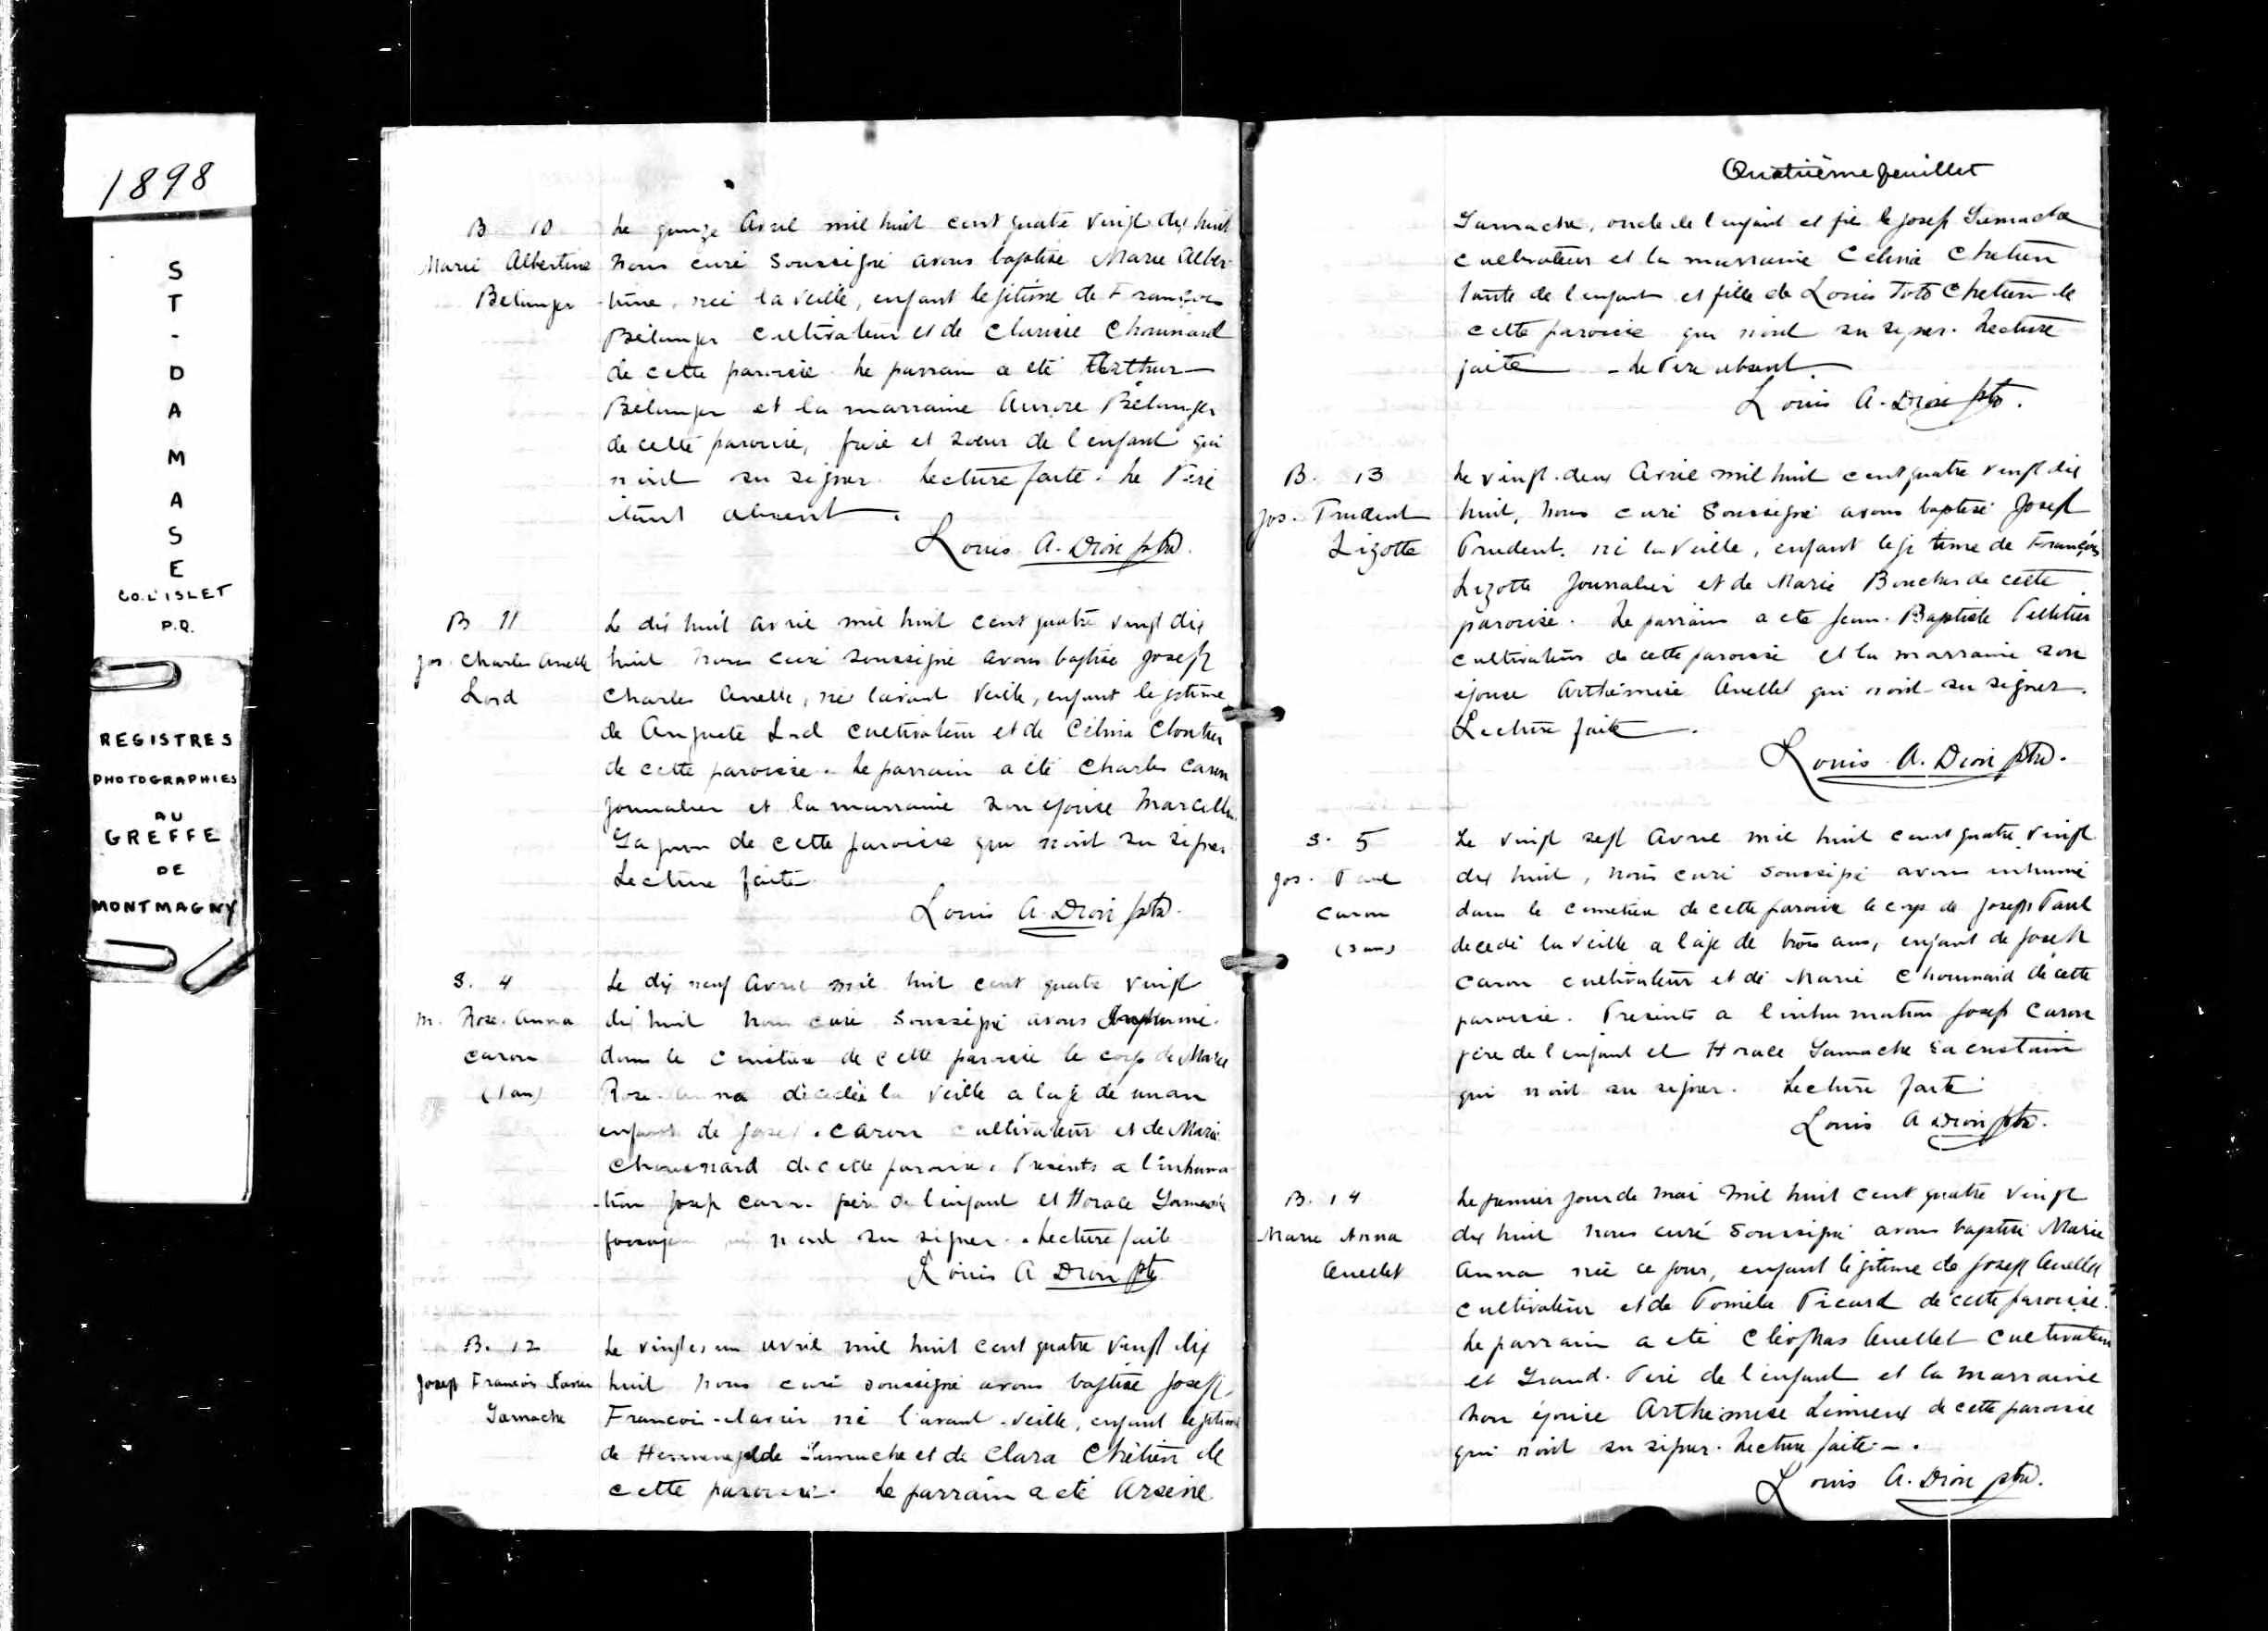 1898
S
T
-
D
A
M
A
S
E
CO. L'ISLET
P.Q.
REGISTRES
PHOTOGRAPHIES
AU
GREFFE
DE
MONTMAGNY
B 10
Marie Albertine
Bélanger
Le quinze Avril mil huit cent quatre vingt dix huit
Nous curé soussigné avons baptisé Marie Alber-
tine, née la veille, enfant légitime de François
Bélanger cultivateur et de Clarisse Chouinard
de cette paroisse. Le parrain a été Arthur
Bélanger et la marraine Aurore Bélanger
de cette paroisse, frère et soeur de l'enfant qui
n'ont su signer. Lecture faite. Le Père
étant absent.
Louis A. Dion ptre.
B 11
Jos. Charles Anelle
Lord
Le dix huit avril mil huit cent quatre vingt dix
huit nous curé soussigné avons baptisé Joseph
Charles Anelle, né l'avant veille, enfant légitime
de Auguste Lord cultivateur et de Célina Cloutier
de cette paroisse. Le parrain a été Charles Caron
journalier et la marraine son épouse Marcelle
Gagnon de cette paroisse qui n'ont su signer
Lecture faite.
Louis A. Dion ptre.
S. 4
M. Rose Anna
Caron
(1 an)
Le dix neuf Avril mil huit cent quatre vingt
dix huit nous curé soussigné avons inhumé
dans le cimetière de cette paroisse le corps de Marie
Rose-Anna décédée la veille a l'age de un an
enfant de Joseph Caron cultivateur et de Marie
Chouinard de cette paroisse. Présents a l'inhuma-
-tion Josep Caron père de l'enfant et Horace Gamache
n'ont su signer. Lecture faite
Louis A Dion ptre
B. 12
Joseph François Xavier
Gamache
Le vingt et un avril mil huit cent quatre vingt dix
huit nous curé soussigné avons baptisé Joseph
François-Xavier né l'avant-veille, enfant légitime
de Hermenegilde Gamache et de Clara Chrétien de
cette paroisse. Le parrain a été Arsène
Quatrième feuillet
Gamache, oncle de l'enfant et fils de Josep Gamache
cultivateur et la marraine Célina Chrétien
tante de l'enfant et fille de Louis Chrétien de
cette paroisse qui n'ont su signer. Lecture
faite - Le Père absent.
Louis A. Dion ptre.
B. 13
Jos. Prudent
Lizotte
Le vingt-deux Avril mil huit cent quatre vingt dix
huit, nous curé soussigné avons baptisé Joseph
Prudent, né la veille, enfant légitime de François
Lizotte Journalier et de Marie Boucher de cette
paroisse. Le parrain a été Jean-Baptiste Pelletier
cultivateur de cette paroisse et la marraine son
épouse Arthémise Anellet qui n'ont su signer.
Lecture faite.
Louis A. Dion ptre.
S. 5
Jos. Paul
Caron
(3 ans)
Le vingt sept Avril mil huit cent quatre vingt
dix huit, nous curé soussigné avons inhumé
dans le cimetière de cette paroisse le corps de Joseph Paul
décédé la veille a l'age de trois ans, enfant de Joseph
Caron cultivateur et de Marie Chouinard de cette
paroisse. Présents a l'inhumation Josep Caron
père de l'enfant et Horace Gamache sacristain
qui n'ont su signer. Lecture faite
Louis A Dion ptre.
B. 14
Marie Anna
Anellet
Le premier jour de mai mil huit cent quatre vingt
dix huit nous curé soussigné avons baptisé Marie
Anna née ce jour, enfant légitime de Joseph Anellet
cultivateur et de Pomela Picard de cette paroisse.
Le parrain a été Cléophas Anellet cultivateur
et Grand-Père de l'enfant et la marraine
son épouse Arthémise Lemieux de cette paroisse
qui n'ont su signer. Lecture faite.
Louis A. Dion ptre.